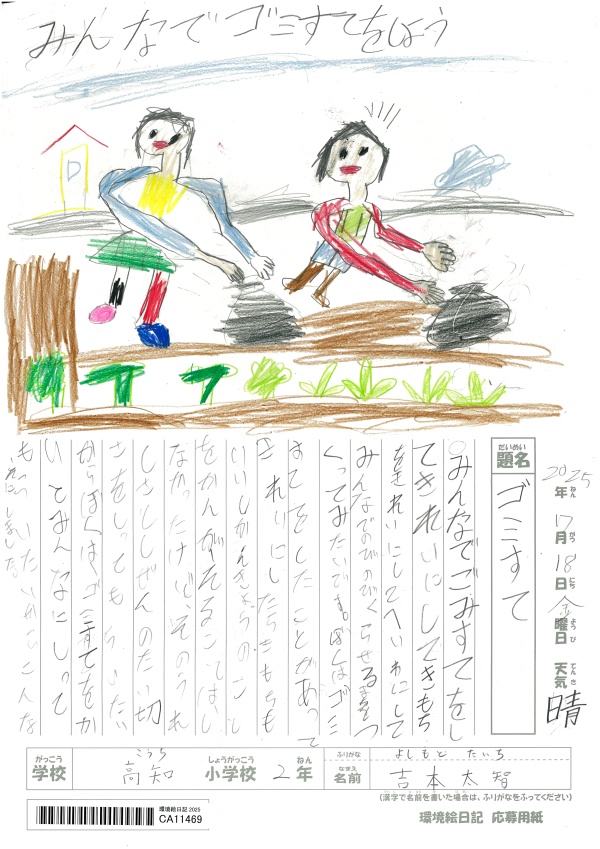 みんなでゴミすてをしよう
P
2025年 7月 18日 金曜日 天気 晴
ねん がつ にち ようび てんき
だいめい
題名 ゴミすて
みんなでごみすてをし
てきれいにしてきもち
をきれいにしてへいわにして
みんなでのびのびくらせるまちをつ
くってみたいです。ぼくはゴミ
すてをしたことがあって
きれいにしたらきもちも
いいしかんきょうのこ
をかんがえることはし
なかったけど、そのうれ
しさとしぜんのたい切
さをしってもらいたい
からぼくはゴミすてをか
いとみんなにしって
もらいたいからこんな
がっこう 学校 こうち 高知 しょうがっこう 小学校 2 ねん 年
ふりがな よしもと たいち
なまえ 名前 吉本太智
(漢字で名前を書いた場合は、ふりがなをふってください)
環境絵日記 2025
CA11469
環境絵日記 応募用紙